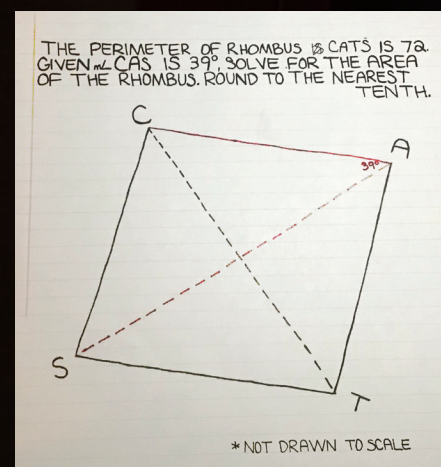 THE PERIMETER OF RHOMBUS CATS IS 72.
GIVEN m∠CAS IS 39°, SOLVE FOR THE AREA
OF THE RHOMBUS. ROUND TO THE NEAREST
TENTH.
C
A
39°
S
T
*NOT DRAWN TO SCALE